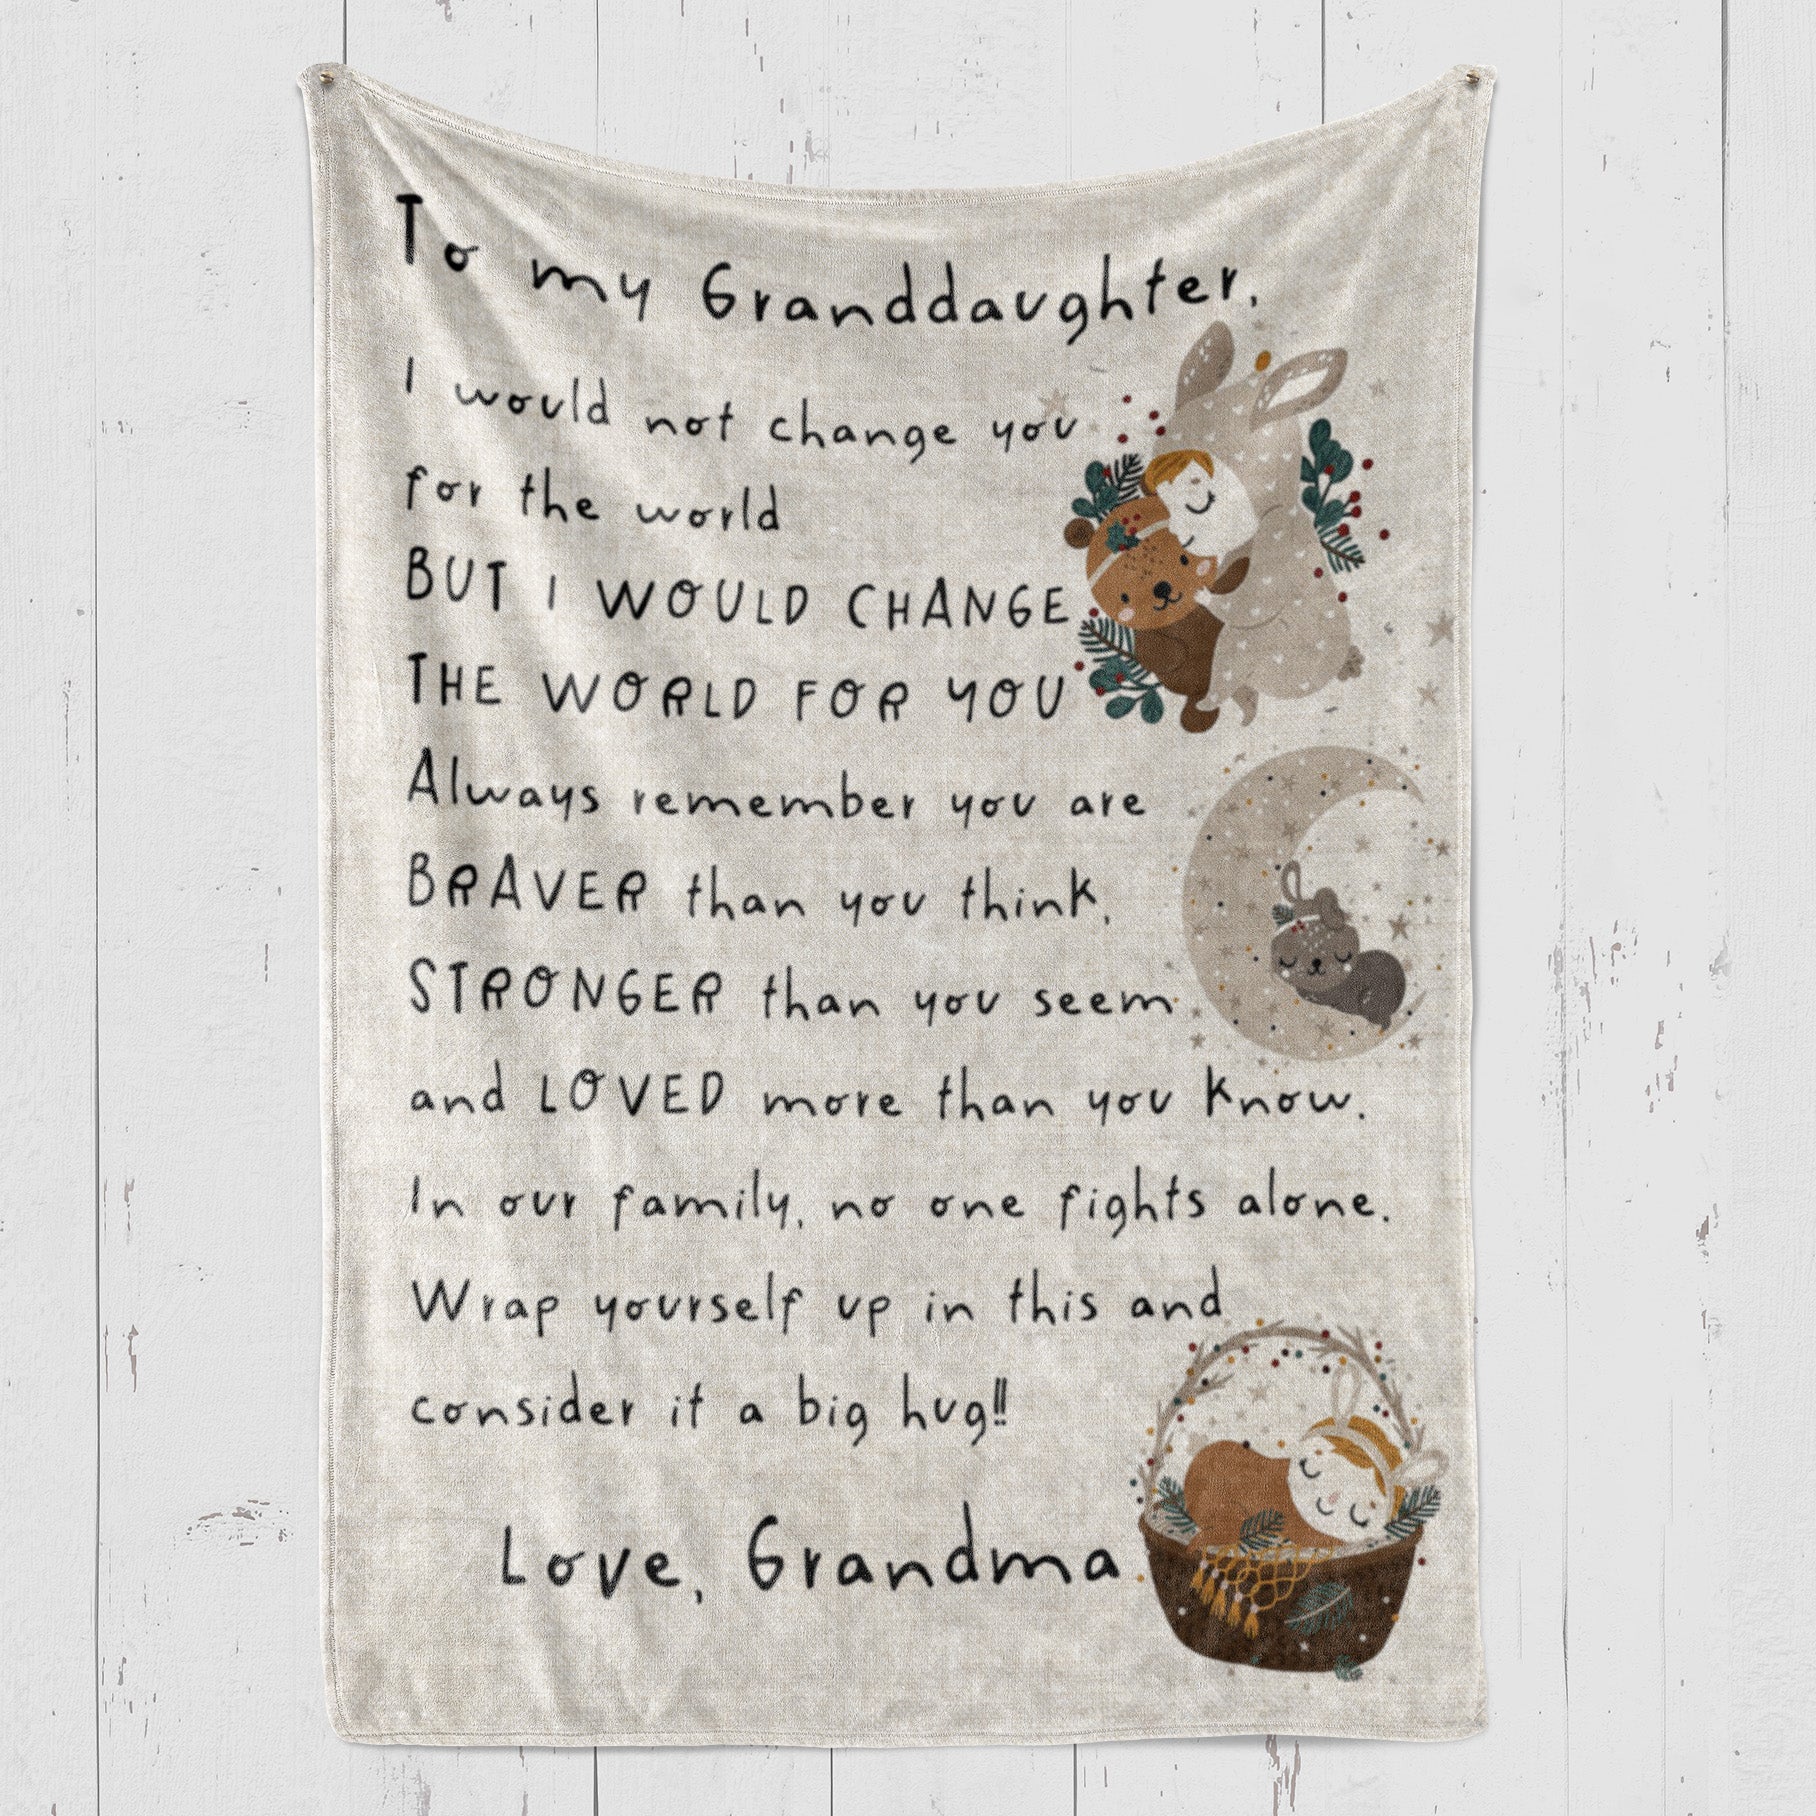 To my Granddaughter,
I would not change you
for the world
BUT I WOULD CHANGE
THE WORLD FOR YOU
Always remember you are
BRAVER than you think,
STRONGER than you seem
and LOVED more than you know.
In our family, no one fights alone.
Wrap yourself up in this and
consider it a big hug!!
Love, Grandma